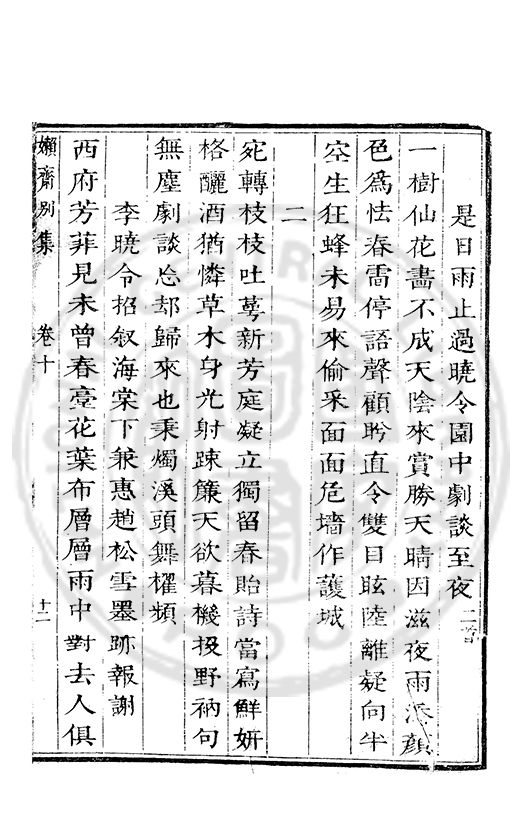 是日雨止過曉令園中劇談至夜二首
一樹仙花畵不成天陰來賞勝天晴因滋夜雨添顏
色爲怯春雷停語聲顧盻直令雙目眩陸離疑向半
空生狂蜂未易來偷采面面危墻作護城
二
宛轉枝枝吐萼新芳庭凝立獨留春貽詩當寫鮮妍
格釃酒猶憐草木身光射疎簾天欲暮機投野衲句
無塵劇談忘却歸來也秉燭溪頭舞櫂頻
李曉令招叙海棠下兼惠趙松雪墨跡報謝
西府芳菲見未曾春臺花葉布層層雨中對去人俱
嬾齋别集
卷十
十二